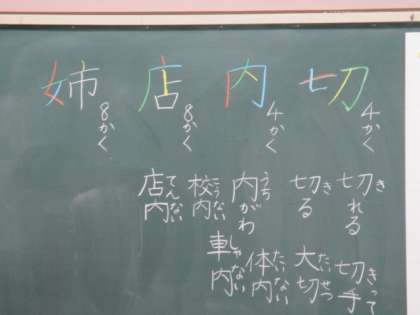 切 4かく
切れる き
切手 きって
切る き
大切 たいせつ
内 4かく
内がわ うち
体内 たいない
校内 こうない
車内 しゃない
店 8かく
店内 てんない
姉 8かく